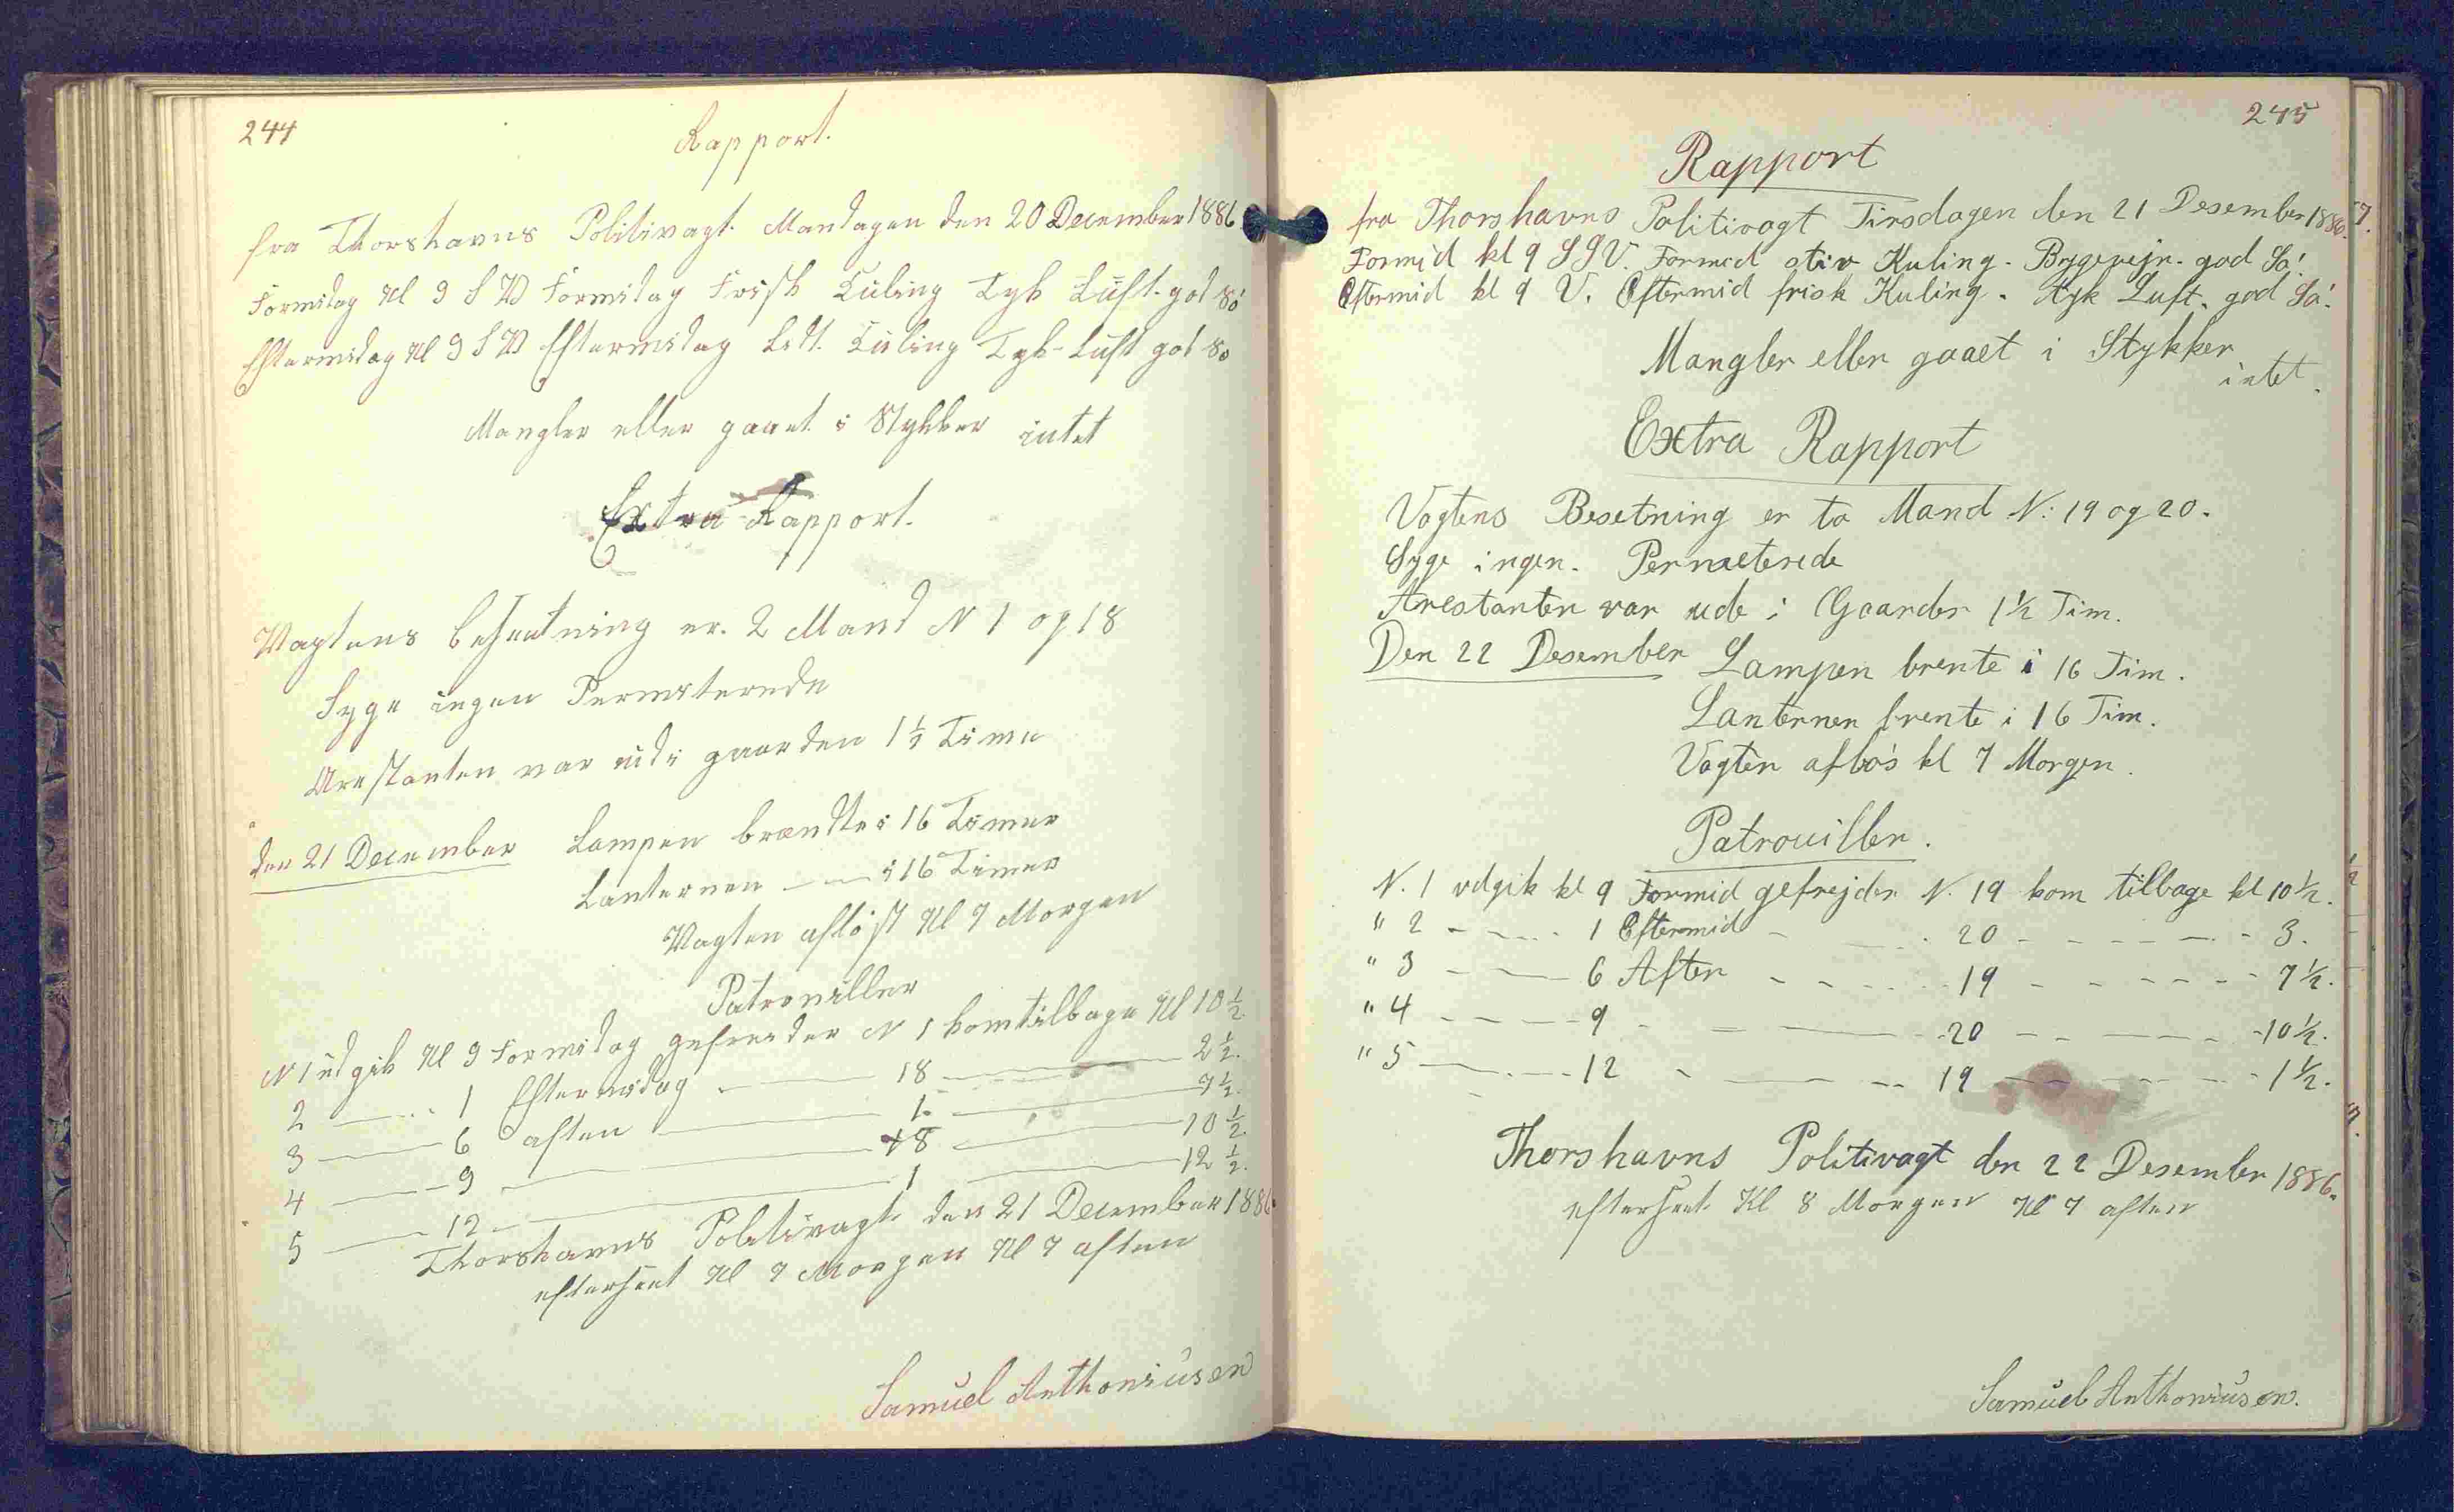 244
Rapport.
fra Thorshavns Politivagt. Mandagen den 20 December 1886
Formidag Kl 9 S V Formidag Frisk Kuling Tyk Luft. god Sö
Eftermidag Kl 9 S V Eftermidag Lidt. Kuling Tyk-Luft god Sö
Mangler eller gaaet i Stykker intet
Extra Rapport.
Vagtens besætning er. 2 Mand N 1 og 18
Syge ingen Permiterede
Arestanten var ud i gaarden 1½ Time
den 21 December Lampen brændte i 16 Timer
Lanternen — — i 16 Timer
Vagten aflöst Kl 7 Morgen
Patrouiller
N 1 udgik Kl 9 Formidag gefreider N 1 kom tilbage Kl 10½
2 — — 1 Eftermidag — — 18 — 2½.
3 — 6 aften — 1. — 7½.
4 — 9 — 18 — 10½.
5 — 12 — 1 — 12½.
Thorshavns Politivagt. den 21 December 1886.
efterseet Kl 7 Morgen Kl 7 aften
Samuel Anthoniusen
245
Rapport
fra Thorshavns Politivagt Tirsdagen den 21 Desember 1886.
Formid kl 9 SSV. Formid stiv Kuling. Bygevejr. god Sö.
Eftermid kl 9 V. Eftermid frisk Kuling. Tyk Luft. god Sö.
Mangler eller gaaet i Stykker
intet.
Extra Rapport
Vagtens Besetning er to Mand N: 19 og 20.
Syge ingen. Permeterede
Arestanten var ude i Gaarder 1½ Tim.
Den 22 Desember Lampen brente i 16 Tim.
Lanternen brente i 16 Tim.
Vagten aflös kl 7 Morgen.
Patrouiller.
N. 1 udgik kl 9 Formid gefrejder N. 19 kom tilbage kl 10½.
" 2 - - - - 1 Eftermid - - - 20 - - - - - 3.
" 3 - - - 6 Aften - - - - 19 - - - - - 7½.
" 4 - - - 9 - - - 20 - - - - 10½.
" 5 - - - 12 - - - 19 - - - - 1½.
Thorshavns Politivagt den 22 Desember 1886.
efterseet. Kl 8 Morgen Kl 7 aften
Samuel Anthoniusen.